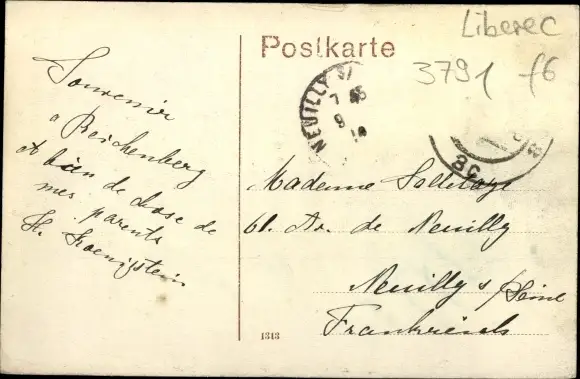 Liberec
Postkarte
3791 f6
NEUILLY S/
7 45
9
Souvenir
a Reichenberg
A bien de chose de
mes parents
H. Koenigstein
Madame
61. Av. de Neuilly
Neuilly s/Seine
Frankreich
1313